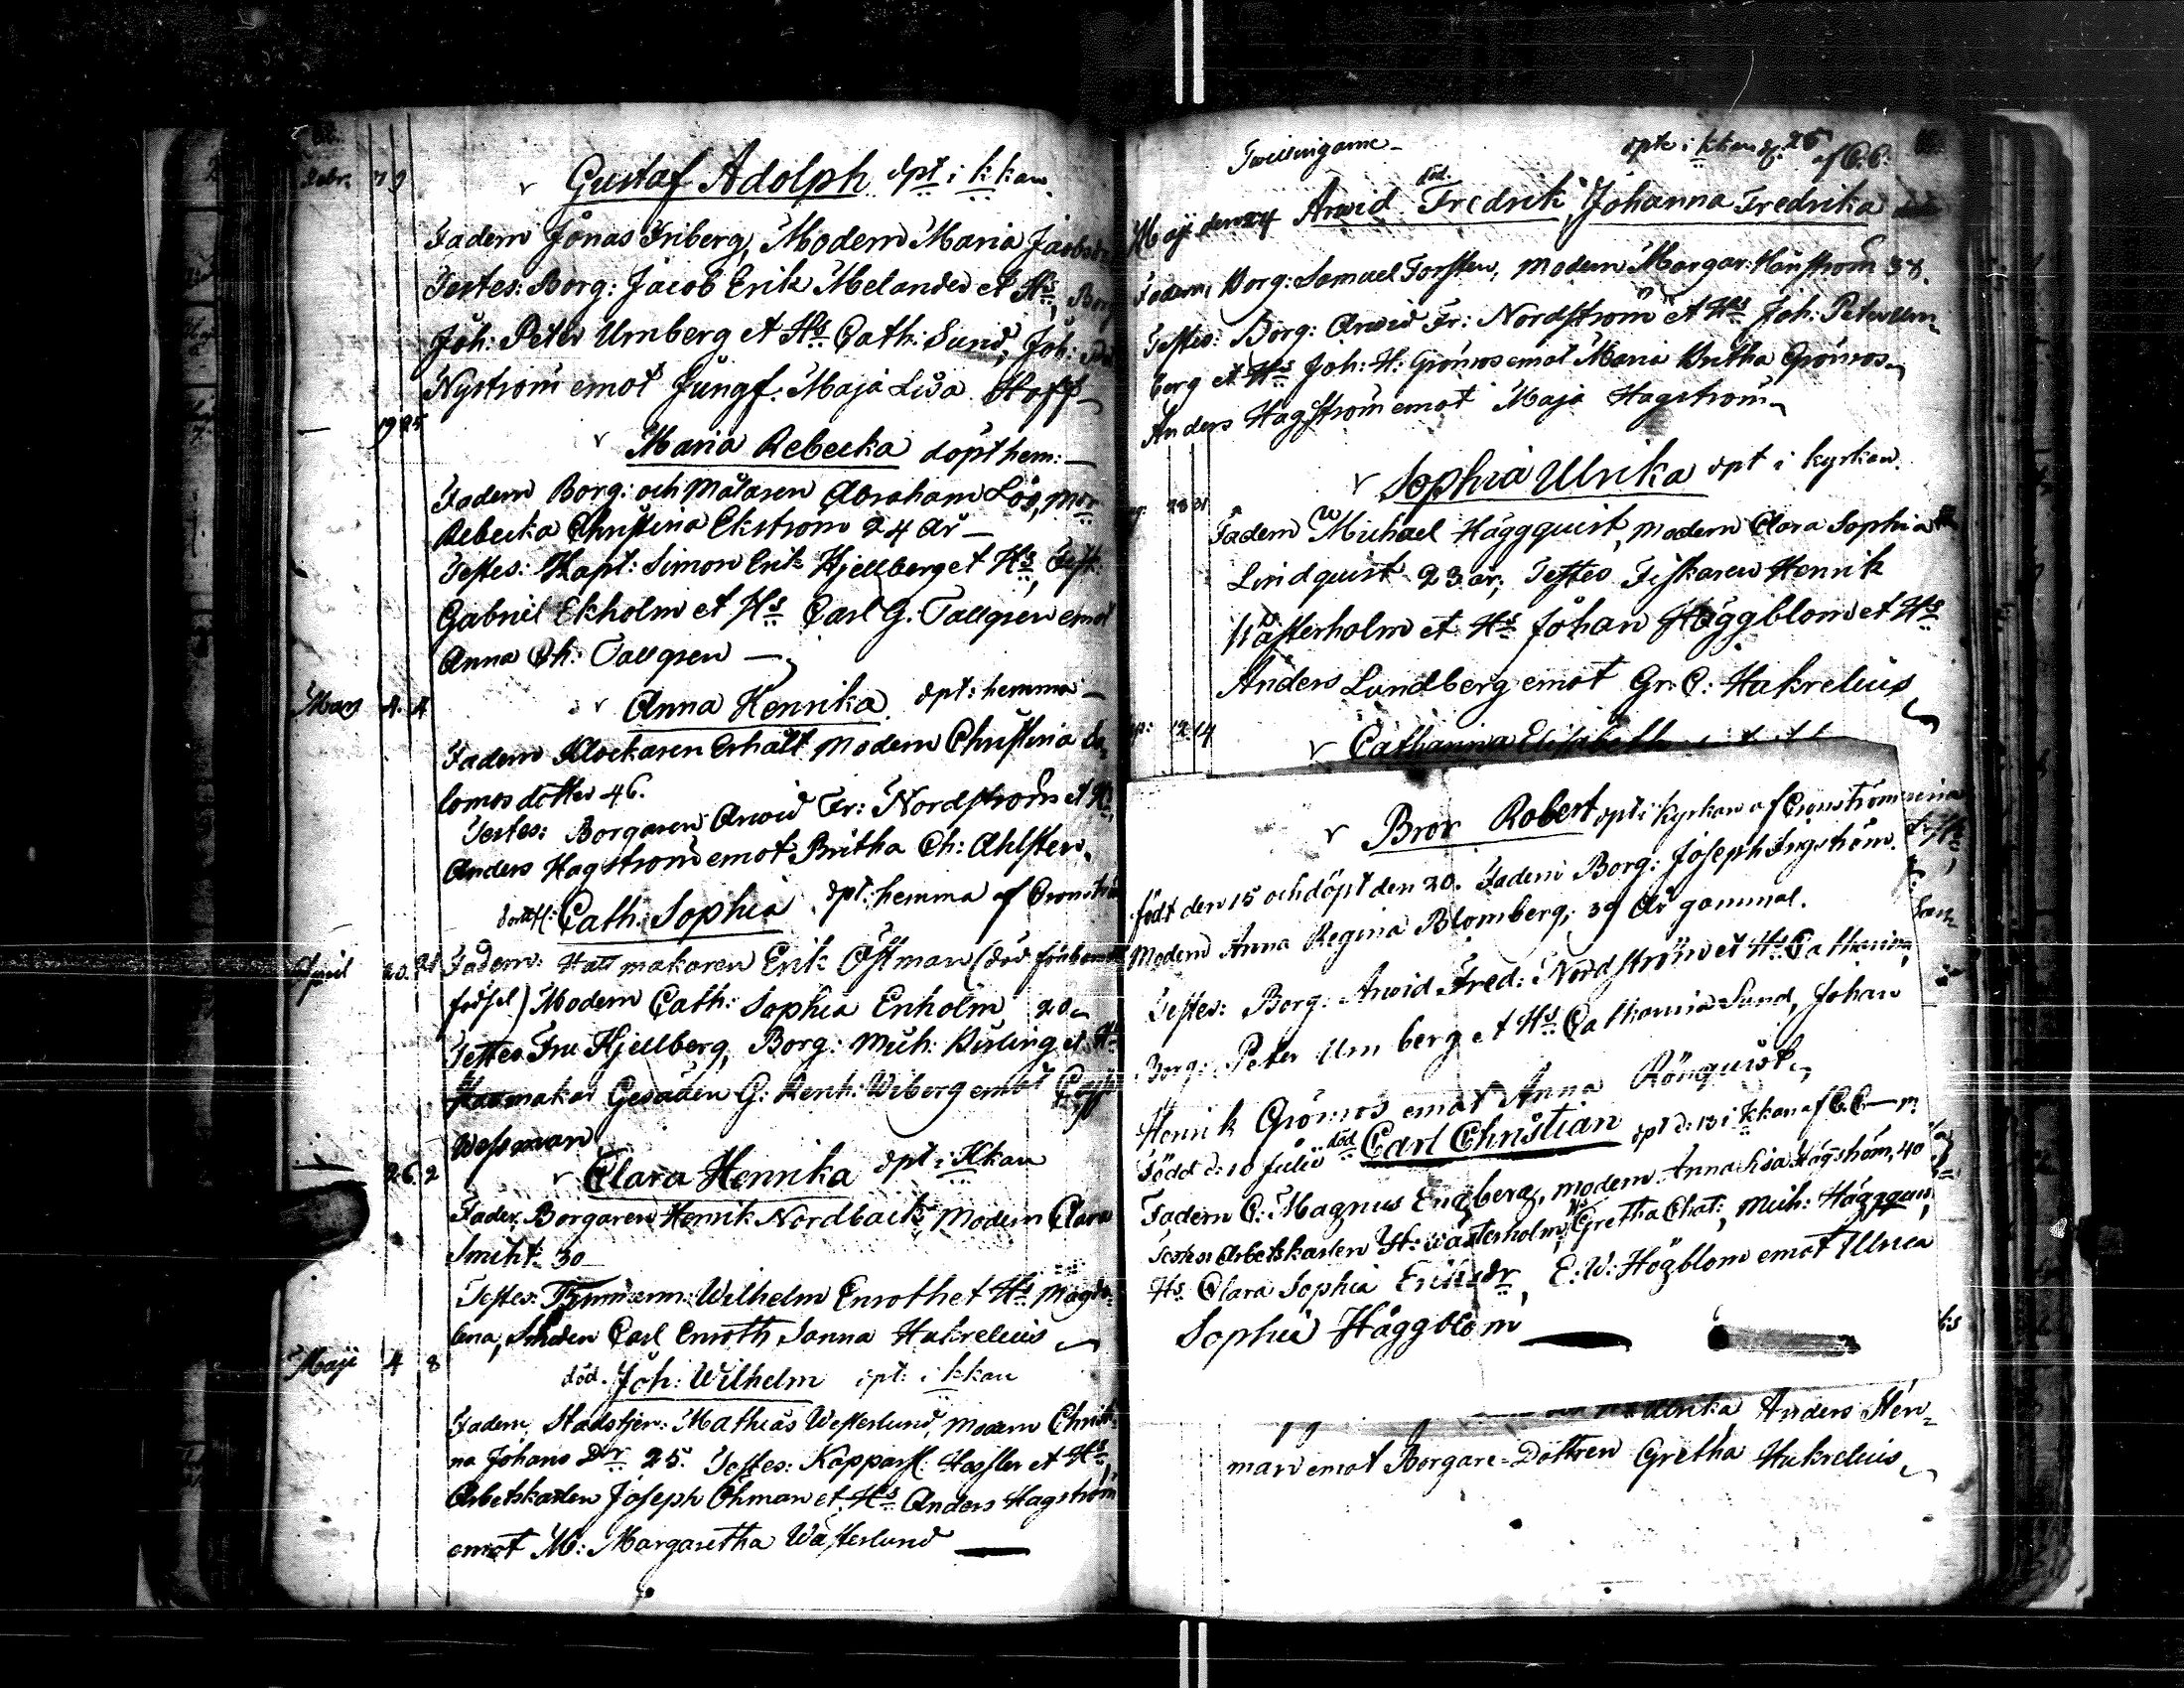 Febr. 7 9
Gustaf Adolph dpt i k:kan
Fadern Jonas Friberg, Modern Maria Jacobs
Testes: Borg: Jacob Erik Melander et Hs, Borg
Joh: Peter Urnberg et Hs Cath: Sund, Joh:
Nyström emot Jungf. Maja Lisa Hoff
19 25
Maria Rebecka döpt hem:
Fadern Borg: och Målaren Abraham Löö, Mor
Rebecka Christina Ekström 24 år
Testes: Kapt: Simon Erik Hjellberg et Hs,
Gabriel Ekholm et Hs Carl G. Tallgren emot
Anna Ch: Tallgren
Mars 4. 4
Anna Henrika dpt: hemma
Fadern Klockaren Erhält Modern Christina Sa
lomos dotter 46.
Testes: Borgaren Arvid Fr: Nordström et Hs,
Anders Hagström emot Britha Ch: Ahlsten.
Cath: Sophia dpt: hemma af Cronström
April 20. 21
Fadern: Hattmakaren Erik Östman (död för barnets
födsel) Modern Cath: Sophia Enholm 20
Testes Fru Hjellberg, Borg: Mich: Kisling et Hs
Hattmakar Gesäden G: Renh: Wiberg emot
Wessman
26. 2
Clara Henrika dpt i Kkan
Fader Borgaren Henrik Nordback Modern Clara
Smiht 30
Testes: Wilhelm Enroth et Hs Magda
lena, Carl Enroth Sanna Hakrelius
Maji 4 8
död. Joh: Wilhelm dpt: i kkan
Fadern, Stadstjen: Mathias Westerlund, Modern Christi
na Johans Dr 25. Testes: Kopparsl: Hassler et Hs,
Arbetskarlen Joseph Öhman et Hs Anders Hagström
emot M: Margaretha Wästerlund
Twillingarne
dpte i kkan d. 25 af C.C:
död.
Maji den 24 Arvid Fredrik, Johanna Fredrika
Fadern, Borg: Samuel Forsten, Modern Margar: Hanström 38.
Testes: Borg: Arvid Fr: Nordström et Hs Joh: Peter Urn
berg et Hs Joh: H: Grönros emot Maria Britha Grönros
Anders Hagström emot Maja Hagström
Sophia Ulrika dpt i kyrkan
28 31
Fadern Michael Häggquist, Modern Clara Sophia
Lindquist 23 år; Testes Fiskaren Henrik
Wästerholm et Hs Johan Häggblom et Hs
Anders Lundberg emot Gr: C: Hakrelius
12 14
Catharina Elisabeth
Bror Robert dpt i kyrkan af Cronström
född den 15 och döpt den 20. Fadern Borg: Joseph Engström.
Modern Anna Regina Blomberg, 39 år gammal.
Testes: Borg: Arvid Fred: Nordström et Hs Catharina,
Borg: Peter Urnberg et Hs Catharina Sund, Johan
Henrik Grönros emot Anna Rönquist
Född d: 10 Julii död Carl Christian dpt d: 13 i kkan af C.C
Fadern C: Magnus Engberg, Modern Anna Lisa Hägström, 40
Testes: Arbetskarlen H: Wästerholm, Hs Gretha Chat:, Mich: Häggquist,
Hs Clara Sophia Eriksdr, E: W: Högblom emot Ulrica
Sophia Häggblom
Ulrika Anders Hen
man emot Borgare-Dottren Gretha Hakrelius